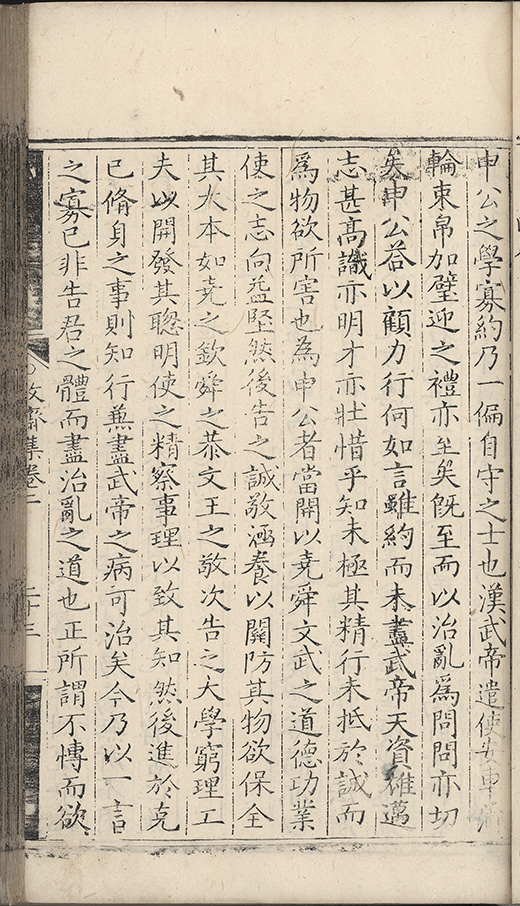 申公之學寡約乃一偏自守之士也漢武帝遣使安車蒲
輪束帛加璧迎之禮亦至矣旣至而以治亂爲問問亦切
矣申公荅以顧力行何如言雖約而未盡武帝天資雄邁
志甚高識亦明才亦壯惜乎知未極其精行未抵於誠而
爲物欲所害也為申公者當開以堯舜文武之道德功業
使之志向益堅然後告之誠敬涵養以關防其物欲保全
其大本如堯之欽舜之恭文王之敬次告之大學窮理工
夫以開發其聦明使之精察事理以致其知然後進於克
已脩身之事則知行兼盡武帝之病可治矣今乃以一言
之寡已非告君之體而盡治亂之道也正所謂不愽而欲
齋集卷二
二十三